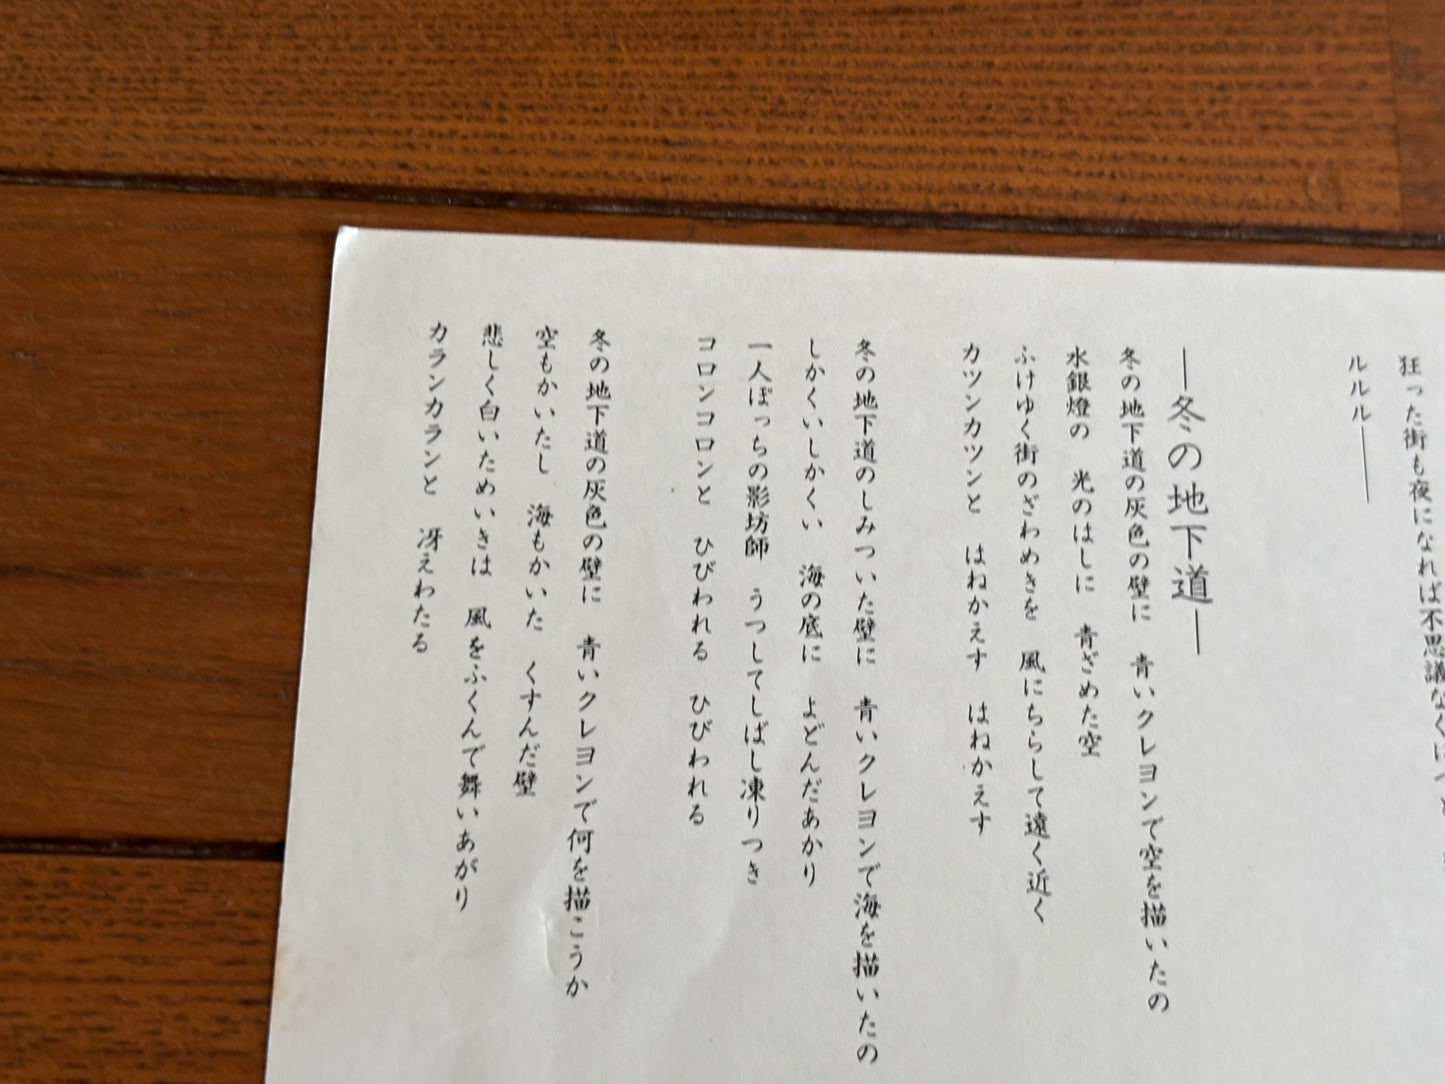 狂った街も夜になれば不思議なくに
ルルル――
―冬の地下道―
冬の地下道の灰色の壁に　青いクレヨンで空を描いたの
水銀燈の　光のはしに　青ざめた空
ふけゆく街のざわめきを　風にちらして遠く近く
カツンカツンと　はねかえす　はねかえす
冬の地下道のしみついた壁に　青いクレヨンで海を描いたの
しかくいしかくい　海の底に　よどんだあかり
一人ぽっちの影坊師　うつしてしばし凍りつき
コロンコロンと　ひびわれる　ひびわれる
冬の地下道の灰色の壁に　青いクレヨンで何を描こうか
空もかいたし　海もかいた　くすんだ壁
悲しく白いためいきは　風をふくんで舞いあがり
カランカランと　冴えわたる